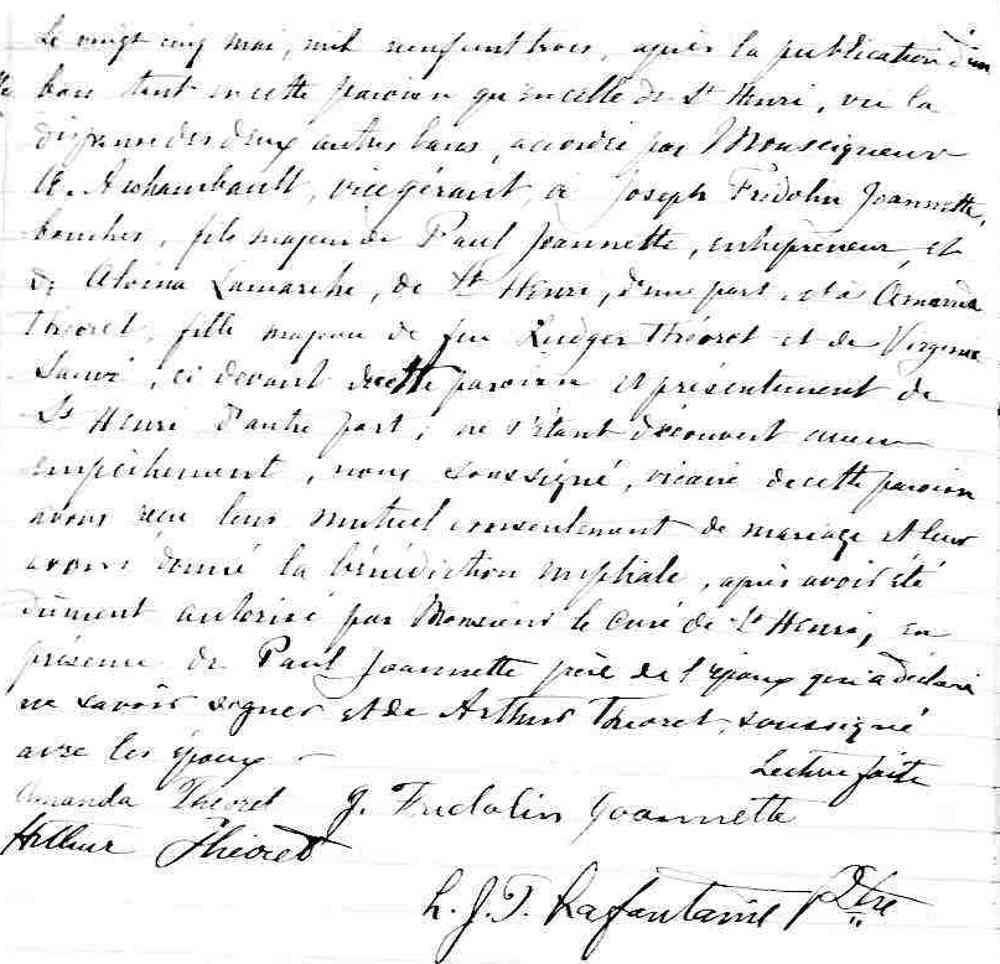 Le vingt cinq mai, mil neuf cent trois, après la publication d'un
ban tant en cette paroisse qu'en celle de St Henri, vu la
dispense des deux autres bans, accordée par Monseigneur
A. Archambault, vice gérant, à Joseph Fridolin Joannette,
boucher, fils majeur de Paul Joannette, entrepreneur, et
de Alvina Lamarche, de St Henri, d'une part, et à Amanda
Théoret, fille majeure de feu Ludger Théoret et de Virginie
Sauvé, ci devant de cette paroisse et présentement de
St Henri d'autre part; ne s'étant découvert aucun
empêchement, nous soussigné, vicaire de cette paroisse
avons reçu leur mutuel consentement de mariage et leur
avons donné la bénédiction nuptiale, après avoir été
dûment autorisé par Monsieur le Curé de St Henri, en
présence de Paul Joannette père de l'époux qui a déclaré
ne savoir signer et de Arthur Théoret, soussigné
avec les époux - Lecture faite
Amanda Théoret J. Fridolin Joannette
Arthur Théoret
L. J. T. Lafontaine Ptre